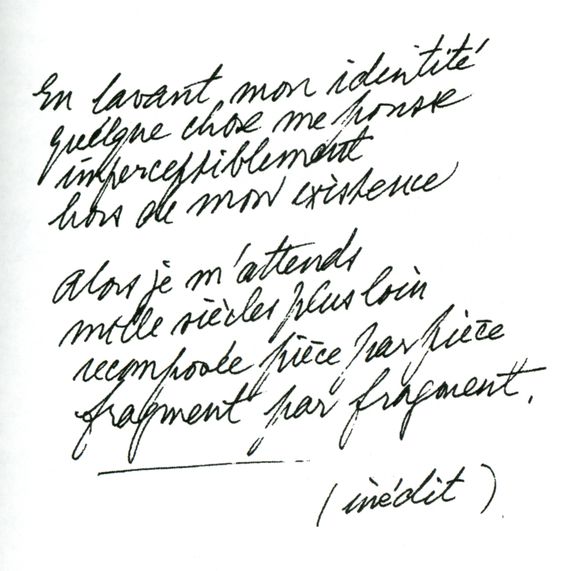 En lavant mon identité
quelque chose me pousse
imperceptiblement
hors de mon existence
Alors je m'attends
mille siècles plus loin
recomposée pièce par pièce
fragment par fragment.
(inédit)